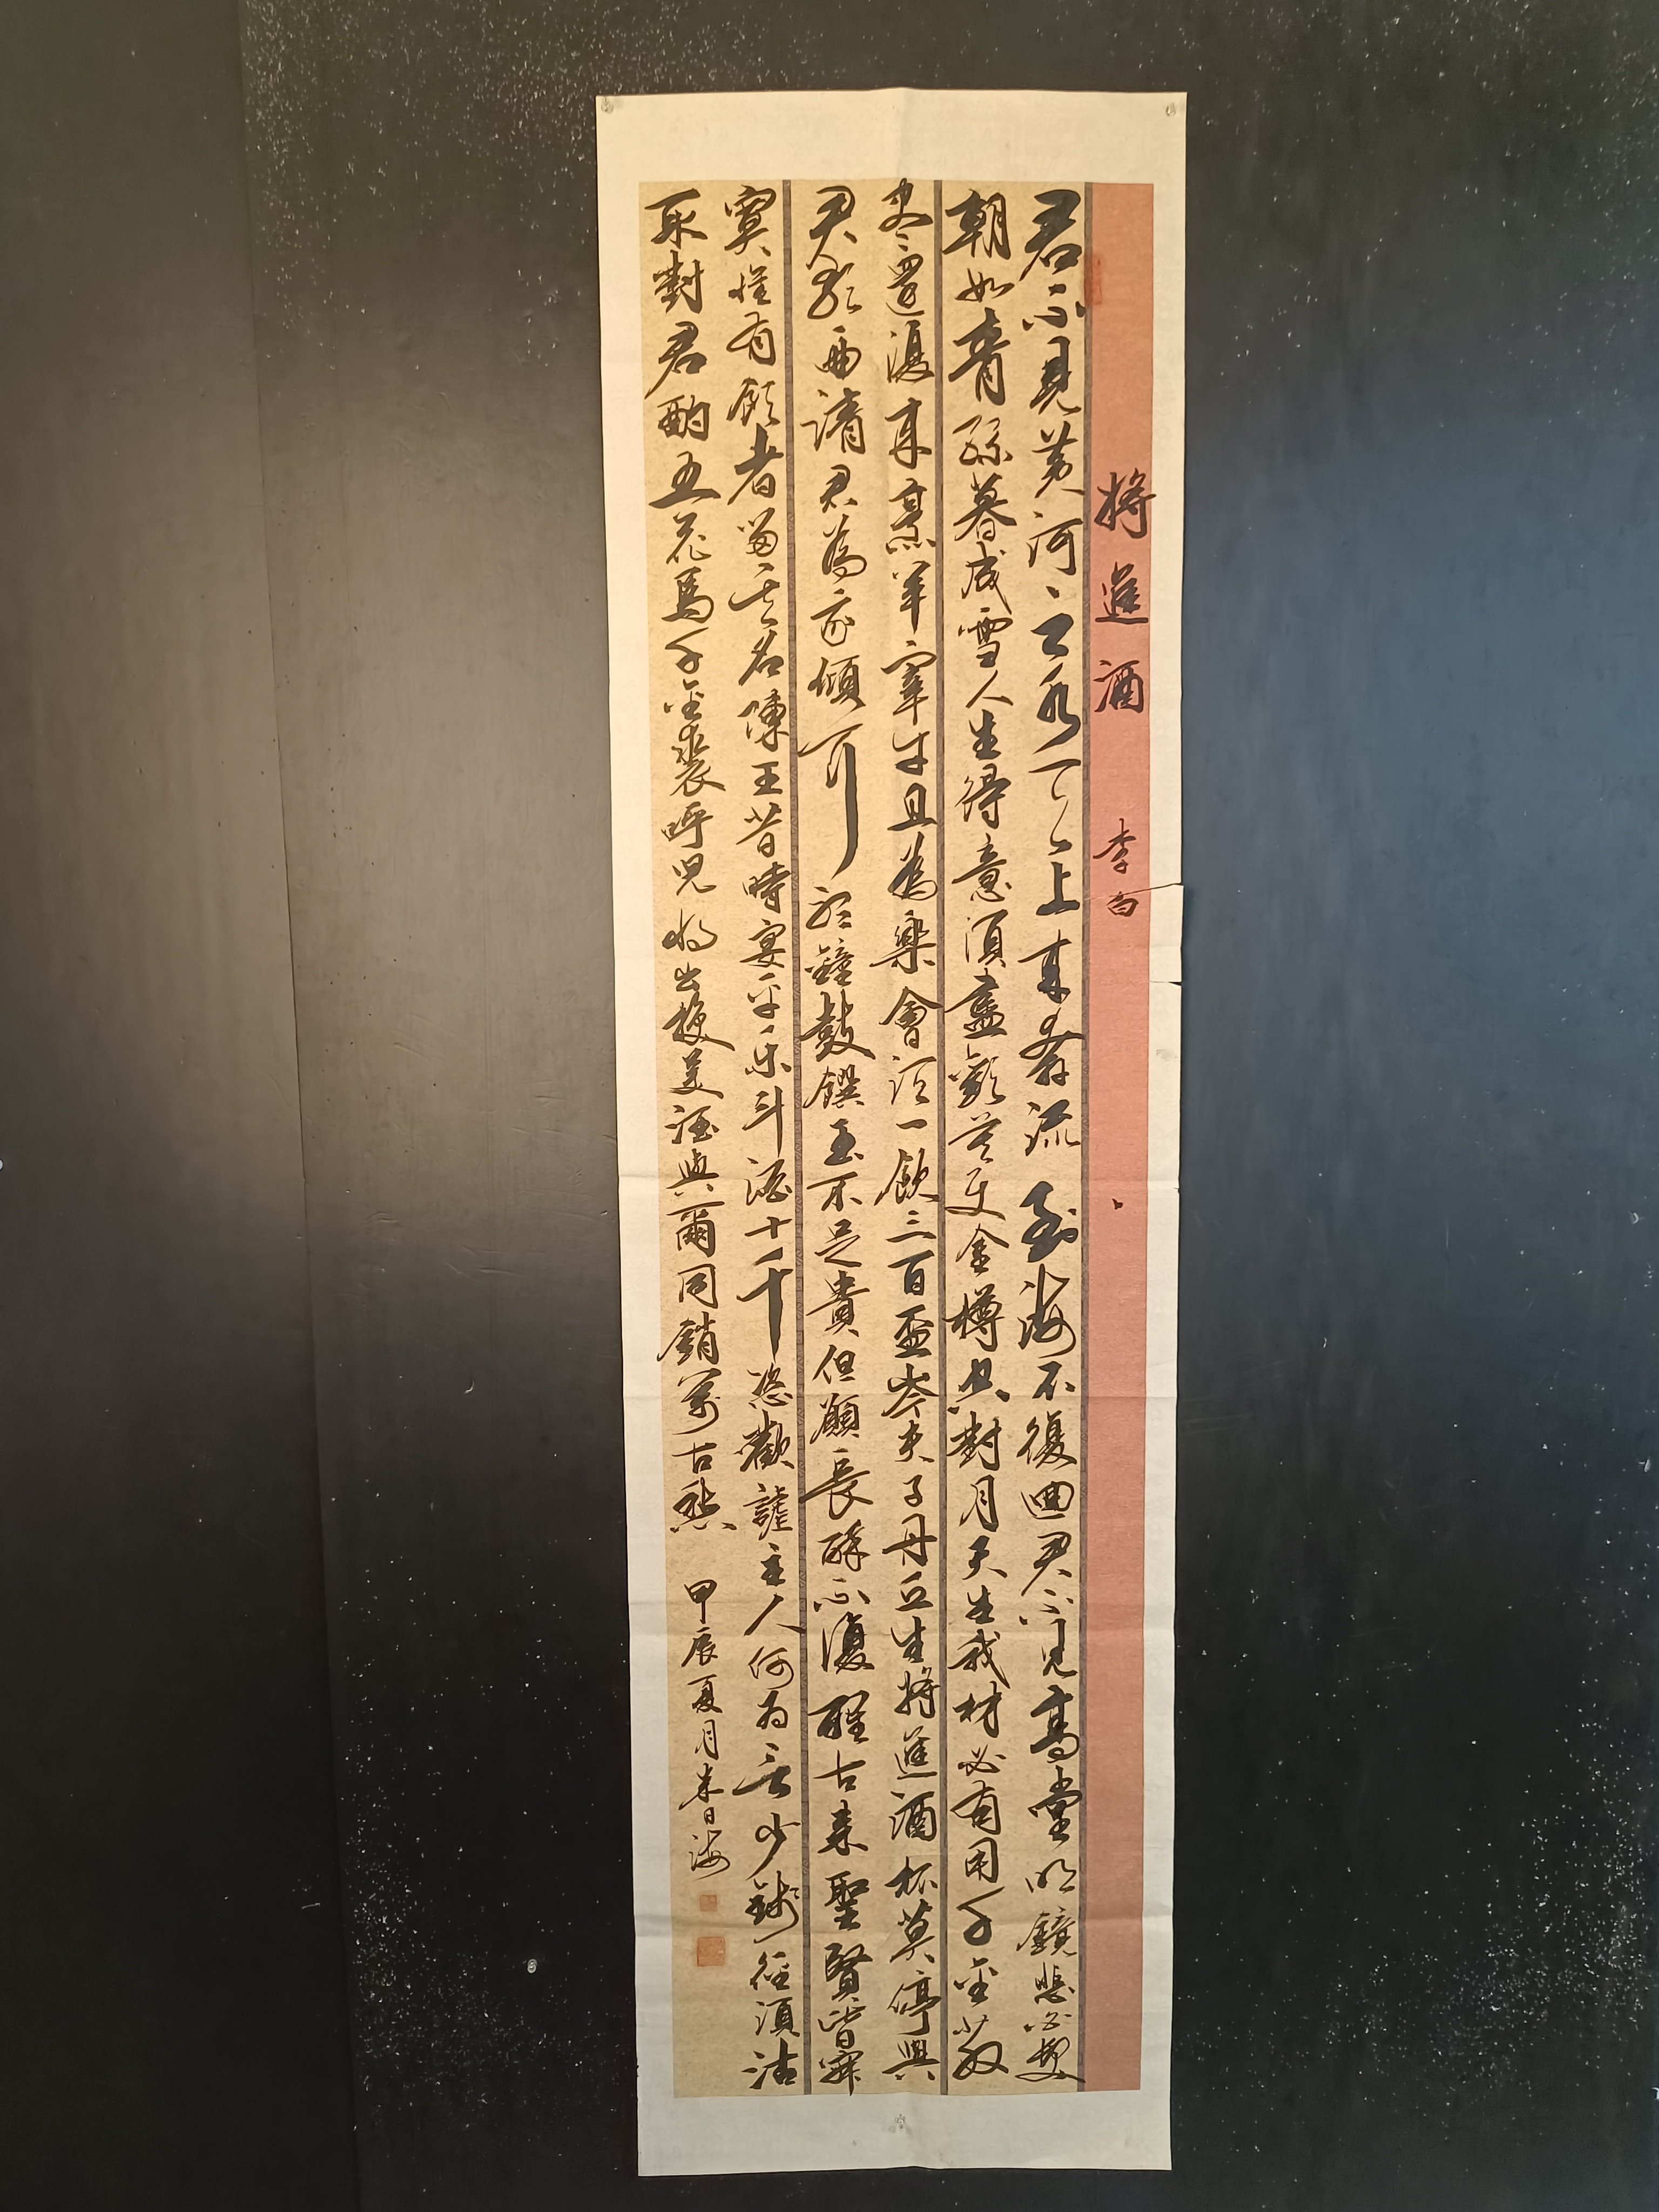 將進酒 李白
君不見黃河之水天上來奔流到海不復迴君不見高堂明鏡悲白髮
朝如青絲暮成雪人生得意須盡歡莫使金樽空對月天生我材必有用千金散
盡還復來烹羊宰牛且為樂會須一飲三百盃岑夫子丹丘生將進酒杯莫停與
君歌一曲請君為我傾耳聽鐘鼓饌玉不足貴但願長醉不復醒古來聖賢皆寂
寞惟有飲者留其名陳王昔時宴平樂斗酒十千恣歡謔主人何為言少錢徑須沽
取對君酌五花馬千金裘呼兒將出換美酒與爾同銷萬古愁 甲辰夏月朱日海